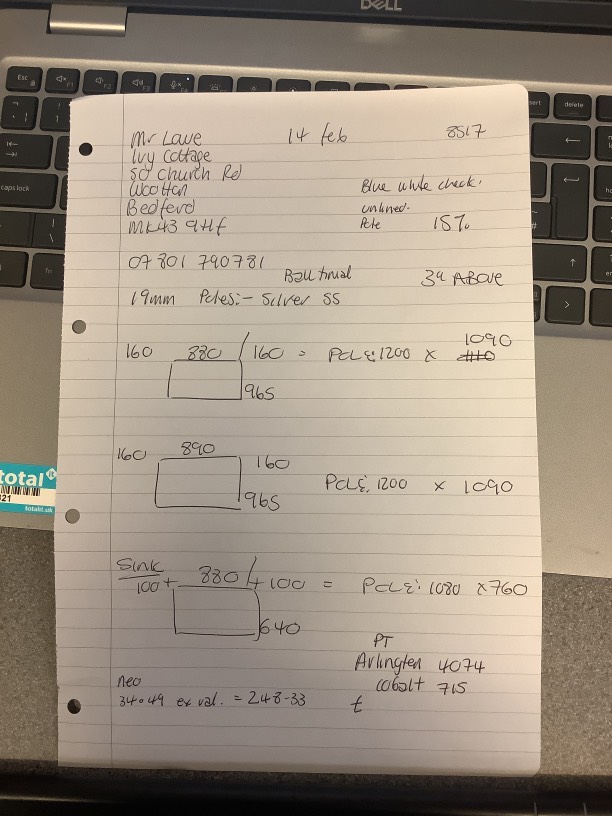 DELL
Mr Lawe 14 feb 8517
Ivy Cottage
50 Church Rd
Wootton
Bedford
MK43 9HF
Blue white check.
unlined.
Pete 15%
07801 790781
Ball finial 3" ABOVE
19mm Poles:- Silver SS
160 880 160 = POLE: 1200 x 1090
965
160 890 160
965 POLE: 1200 x 1090
Sink
100 + 880 + 100 = POLE: 1080 x 760
640
PT
Arlington 4074
Cobalt 715
neo
34.49 ex vat. = 248-33 t
total